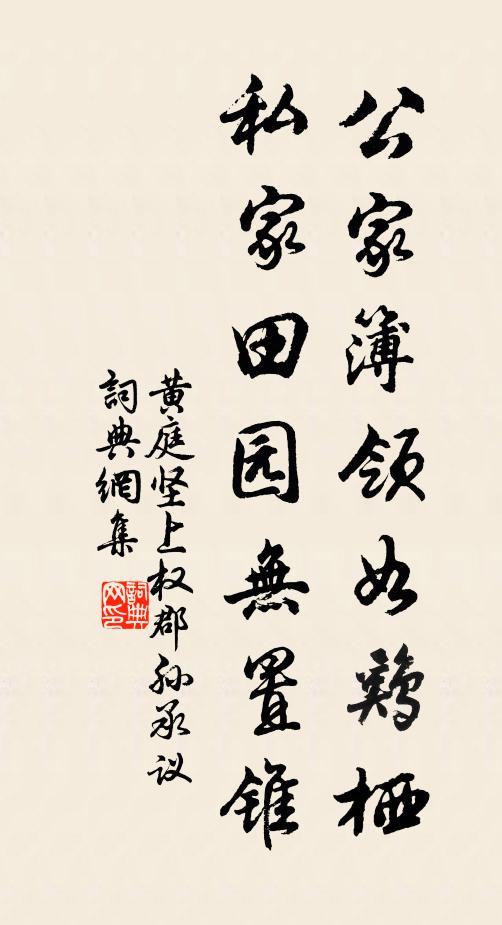 公家簿领如鷄栖
私家田园無置锥
黄庭坚上权郡孙承议
詞典網集
詞典网印